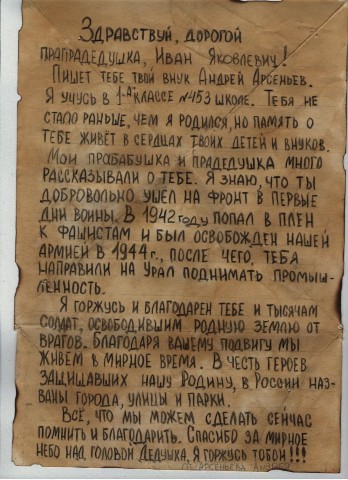 Здравствуй, дорогой
прапрадедушка, Иван Яковлевич!
Пишет тебе твой внук Андрей Арсеньев.
Я учусь в 1-"А" классе №453 школе. Тебя не
стало раньше, чем я родился, но память о
тебе живёт в сердцах твоих детей и внуков.
Мои прабабушка и прадедушка много
рассказывали о тебе. Я знаю, что ты
добровольно ушёл на фронт в первые
дни войны. В 1942 году попал в плен
к фашистам и был освобожден нашей
армией в 1944 г., после чего, тебя
направили на Урал поднимать промыш-
ленность.
Я горжусь и благодарен тебе и тысячам
солдат, освободившим родную землю от
врагов. Благодаря вашему подвигу мы
живём в мирное время. В честь героев
защищавших нашу Родину, в России наз-
ваны города, улицы и парки.
Всё, что мы можем сделать сейчас
помнить и благодарить. Спасибо за мирное
небо над головой Дедушка, Я горжусь тобой!!!
Арсеньева